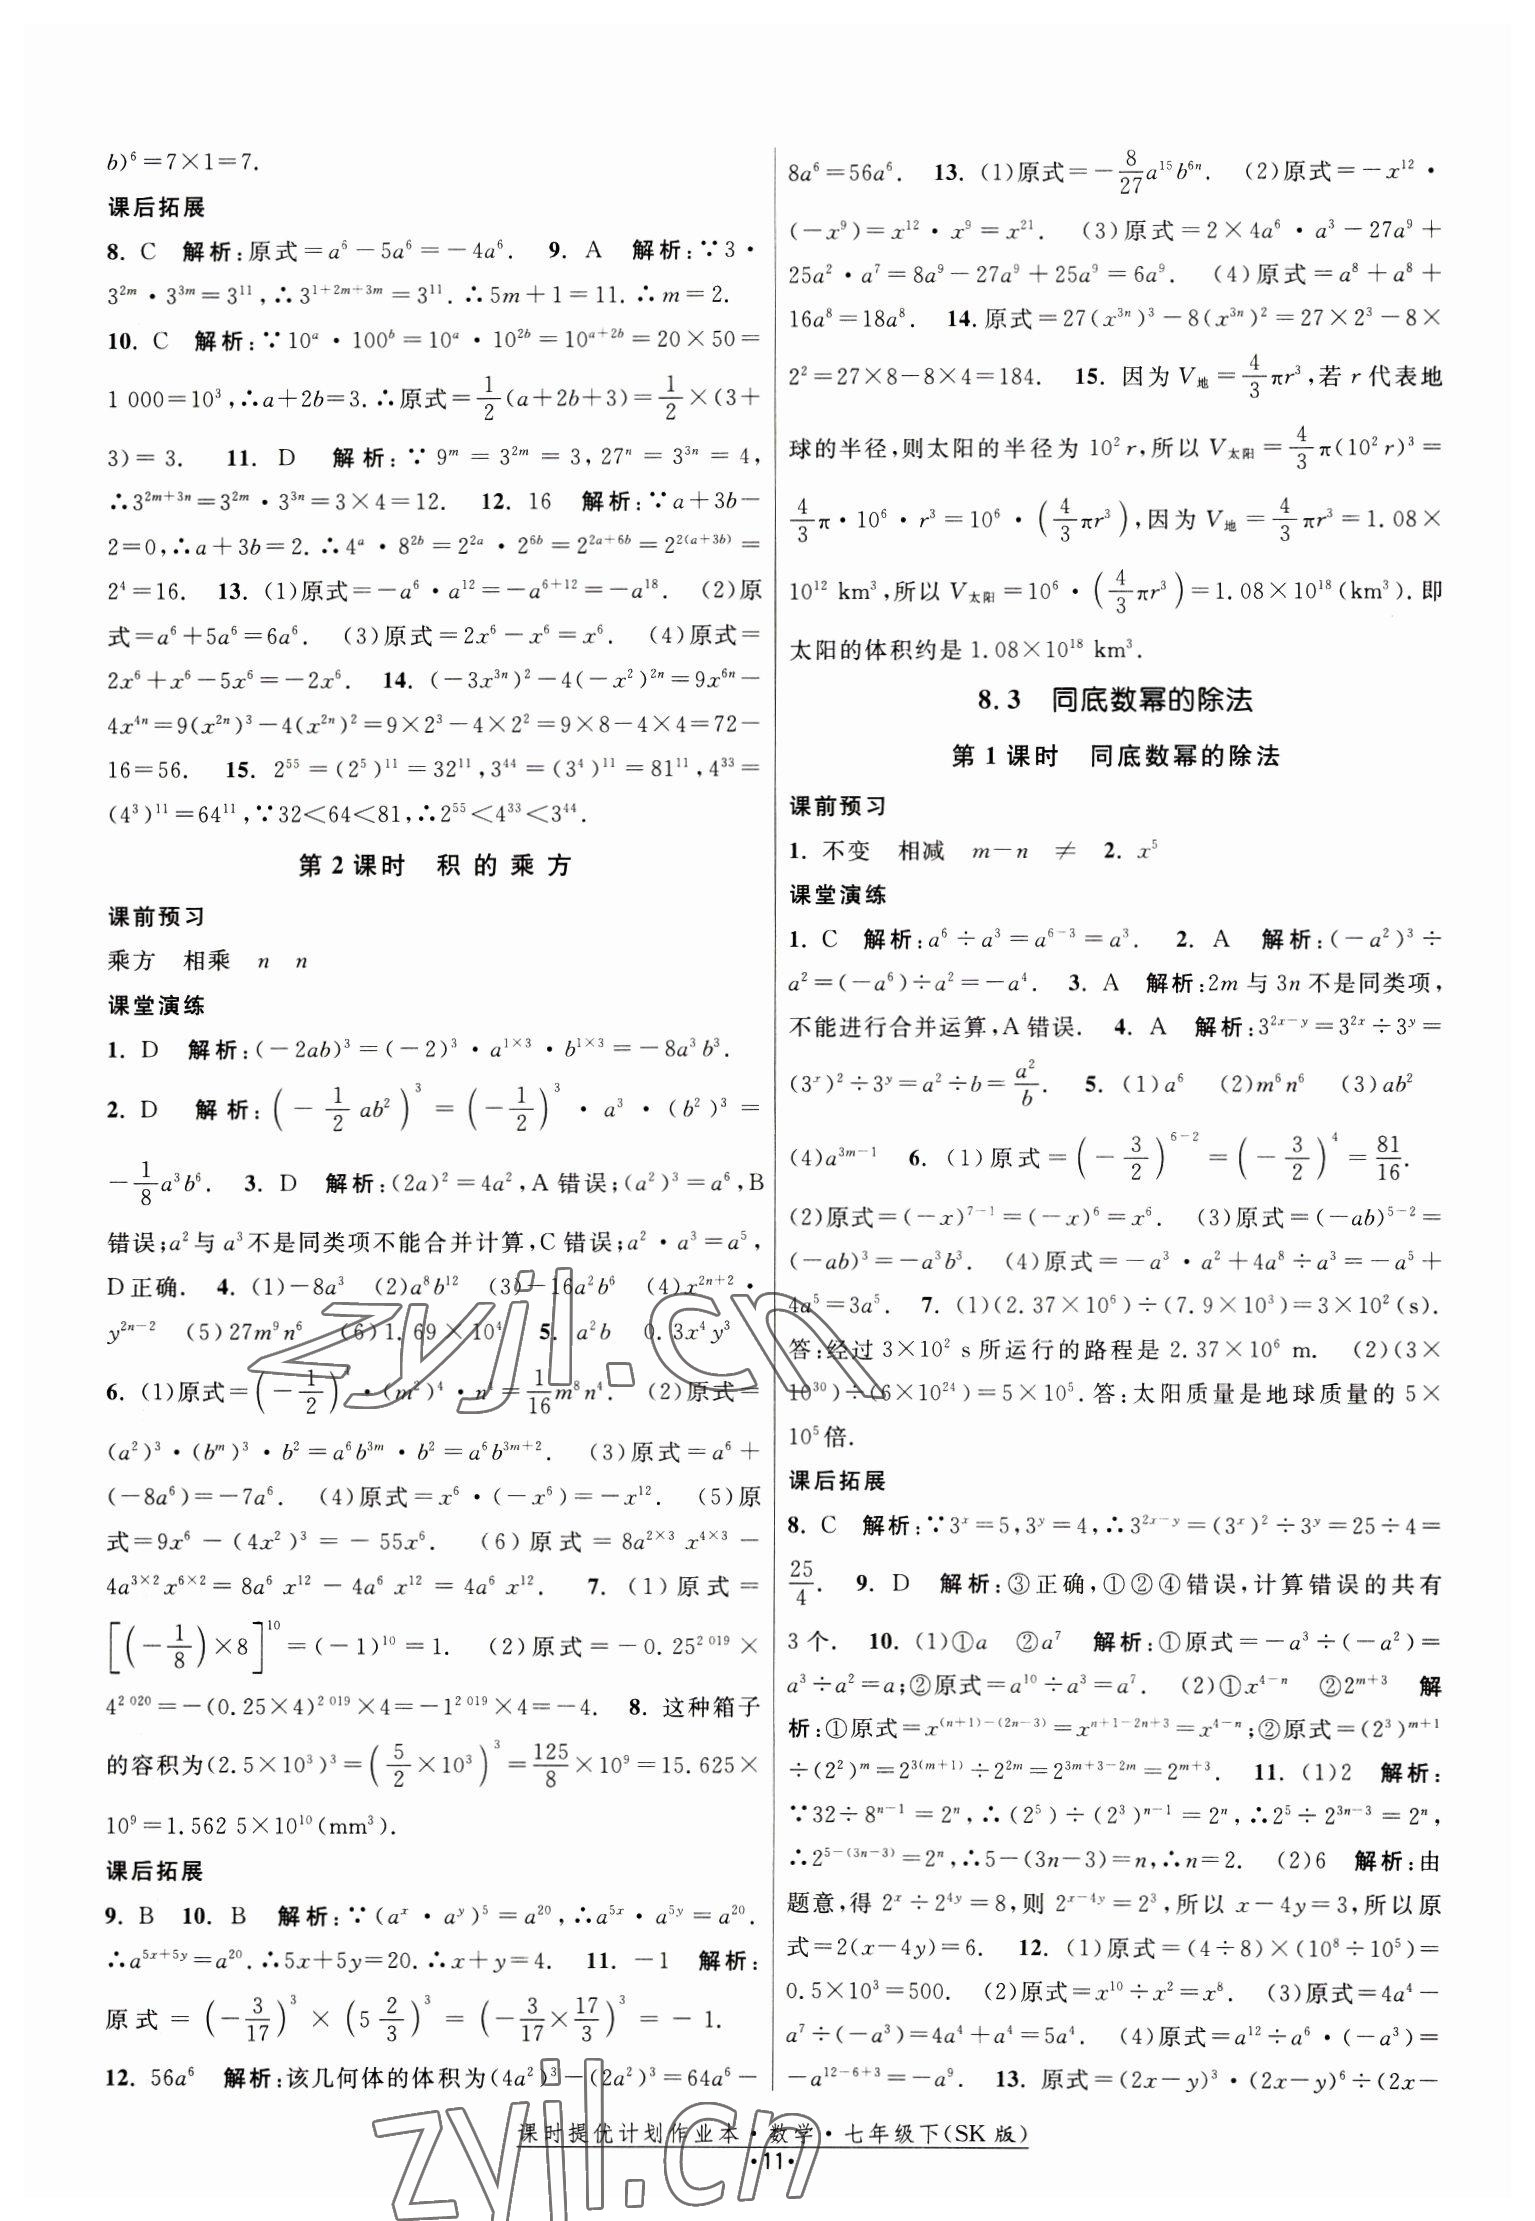 b)⁶=7×1=7.
课后拓展
8. C 解析:原式=a⁶-5a⁶=-4a⁶. 9. A 解析:∵3·
3²ᵐ·3³ᵐ=3¹¹,∴3¹⁺²ᵐ⁺³ᵐ=3¹¹.∴5m+1=11.∴m=2.
10. C 解析:∵10ᵃ·100ᵇ=10ᵃ·10²ᵇ=10ᵃ⁺²ᵇ=20×50=
1 000=10³,∴a+2b=3.∴原式=1/2(a+2b+3)=1/2×(3+
3)=3. 11. D 解析:∵9ᵐ=3²ᵐ=3,27ⁿ=3³ⁿ=4,
∴3²ᵐ⁺³ⁿ=3²ᵐ·3³ⁿ=3×4=12. 12. 16 解析:∵a+3b-
2=0,∴a+3b=2.∴4ᵃ·8²ᵇ=2²ᵃ·2⁶ᵇ=2²ᵃ⁺⁶ᵇ=2²⁽ᵃ⁺³ᵇ⁾=
2⁴=16. 13. (1)原式=-a⁶·a¹²=-a⁶⁺¹²=-a¹⁸. (2)原
式=a⁶+5a⁶=6a⁶. (3)原式=2x⁶-x⁶=x⁶. (4)原式=
2x⁶+x⁶-5x⁶=-2x⁶. 14. (-3x³ⁿ)²-4(-x²)²ⁿ=9x⁶ⁿ-
4x⁴ⁿ=9(x²ⁿ)³-4(x²ⁿ)²=9×2³-4×2²=9×8-4×4=72-
16=56. 15. 2⁵⁵=(2⁵)¹¹=32¹¹,3⁴⁴=(3⁴)¹¹=81¹¹,4³³=
(4³)¹¹=64¹¹,∵32<64<81,∴2⁵⁵<4³³<3⁴⁴.
第2课时 积的乘方
课前预习
乘方 相乘 n n
课堂演练
1. D 解析:(-2ab)³=(-2)³·a¹ˣ³·b¹ˣ³=-8a³b³.
2. D 解析:(-1/2 ab²)³=(-1/2)³·a³·(b²)³=
-1/8 a³b⁶. 3. D 解析:(2a)²=4a²,A错误;(a²)³=a⁶,B
错误;a²与a³不是同类项不能合并计算,C错误;a²·a³=a⁵,
D正确. 4. (1)-8a³ (2)a⁸b¹² (3)-16a²b⁶ (4)x²ⁿ⁺²·
y²ⁿ⁻² (5)27m⁹n⁶ (6)1.69×10⁴ 5. a²b 0.3x⁴y³
6. (1)原式=(-1/2)⁴·(m²)⁴·n⁴=1/16 m⁸n⁴. (2)原式=
(a²)³·(bᵐ)³·b²=a⁶b³ᵐ·b²=a⁶b³ᵐ⁺². (3)原式=a⁶+
(-8a⁶)=-7a⁶. (4)原式=x⁶·(-x⁶)=-x¹². (5)原
式=9x⁶-(4x²)³=-55x⁶. (6)原式=8a²ˣ³x⁴ˣ³-
4a³ˣ²x⁶ˣ²=8a⁶x¹²-4a⁶x¹²=4a⁶x¹². 7. (1)原式=
[(-1/8)×8]¹⁰=(-1)¹⁰=1. (2)原式=-0.25²⁰¹⁹×
4²⁰²⁰=-(0.25×4)²⁰¹⁹×4=-1²⁰¹⁹×4=-4. 8. 这种箱子
的容积为(2.5×10³)³=(5/2×10³)³=125/8×10⁹=15.625×
10⁹=1.562 5×10¹⁰(mm³).
课后拓展
9. B 10. B 解析:∵(aˣ·aʸ)⁵=a²⁰,∴a⁵ˣ·a⁵ʸ=a²⁰.
∴a⁵ˣ⁺⁵ʸ=a²⁰.∴5x+5y=20.∴x+y=4. 11. -1 解析:
原式=(-3/17)³×(5 2/3)³=(-3/17×17/3)³=-1.
12. 56a⁶ 解析:该几何体的体积为(4a²)³-(2a²)³=64a⁶-
8a⁶=56a⁶. 13. (1)原式=-8/27 a¹⁵b⁶ⁿ. (2)原式=-x¹²·
(-x⁹)=x¹²·x⁹=x²¹. (3)原式=2×4a⁶·a³-27a⁹+
25a²·a⁷=8a⁹-27a⁹+25a⁹=6a⁹. (4)原式=a⁸+a⁸+
16a⁸=18a⁸. 14.原式=27(x³ⁿ)³-8(x³ⁿ)²=27×2³-8×
2²=27×8-8×4=184. 15. 因为V地=4/3πr³,若r代表地
球的半径,则太阳的半径为10²r,所以V太阳=4/3π(10²r)³=
4/3π·10⁶·r³=10⁶·(4/3πr³),因为V地=4/3πr³=1.08×
10¹² km³,所以V太阳=10⁶·(4/3πr³)=1.08×10¹⁸(km³).即
太阳的体积约是1.08×10¹⁸ km³.
8.3 同底数幂的除法
第1课时 同底数幂的除法
课前预习
1. 不变 相减 m-n ≠ 2. x⁵
课堂演练
1. C 解析:a⁶÷a³=a⁶⁻³=a³. 2. A 解析:(-a²)³÷
a²=(-a⁶)÷a²=-a⁴. 3. A 解析:2m与3n不是同类项,
不能进行合并运算,A错误. 4. A 解析:3²ˣ⁻ʸ=3²ˣ÷3ʸ=
(3ˣ)²÷3ʸ=a²÷b=a²/b. 5. (1)a⁶ (2)m⁶n⁶ (3)ab²
(4)a³ᵐ⁻¹ 6. (1)原式=(-3/2)⁶⁻²=(-3/2)⁴=81/16.
(2)原式=(-x)⁷⁻¹=(-x)⁶=x⁶. (3)原式=(-ab)⁵⁻²=
(-ab)³=-a³b³. (4)原式=-a³·a²+4a⁸÷a³=-a⁵+
4a⁵=3a⁵. 7. (1)(2.37×10⁶)÷(7.9×10³)=3×10²(s).
答:经过3×10² s所运行的路程是2.37×10⁶ m. (2)(3×
10³⁰)÷(6×10²⁴)=5×10⁵.答:太阳质量是地球质量的5×
10⁵倍.
课后拓展
8. C 解析:∵3ˣ=5,3ʸ=4,∴3²ˣ⁻ʸ=(3ˣ)²÷3ʸ=25÷4=
25/4. 9. D 解析:③正确,①②④错误,计算错误的共有
3个. 10. (1)①a ②a⁷ 解析:①原式=-a³÷(-a²)=
a³÷a²=a;②原式=a¹⁰÷a³=a⁷. (2)①x⁴⁻ⁿ ②2ᵐ⁺³ 解
析:①原式=x⁽ⁿ⁺¹⁾⁻⁽²ⁿ⁻³⁾=xⁿ⁺¹⁻²ⁿ⁺³=x⁴⁻ⁿ;②原式=(2³)ᵐ⁺¹
÷(2²)ᵐ=2³⁽ᵐ⁺¹⁾÷2²ᵐ=2³ᵐ⁺³⁻²ᵐ=2ᵐ⁺³. 11. (1)2 解析:
∵32÷8ⁿ⁻¹=2ⁿ,∴(2⁵)÷(2³)ⁿ⁻¹=2ⁿ,∴2⁵÷2³ⁿ⁻³=2ⁿ,
∴2⁵⁻⁽³ⁿ⁻³⁾=2ⁿ,∴5-(3n-3)=n,∴n=2. (2)6 解析:由
题意,得2ˣ÷2⁴ʸ=8,则2ˣ⁻⁴ʸ=2³,所以x-4y=3,所以原
式=2(x-4y)=6. 12. (1)原式=(4÷8)×(10⁸÷10⁵)=
0.5×10³=500. (2)原式=x¹⁰÷x²=x⁸. (3)原式=4a⁴-
a⁷÷(-a³)=4a⁴+a⁴=5a⁴. (4)原式=a¹²÷a⁶·(-a³)=
-a¹²⁻⁶⁺³=-a⁹. 13. 原式=(2x-y)³·(2x-y)⁶÷(2x-
课时提优计划作业本·数学·七年级下(SK版)
·11·
zyjl.cn
zyjl.cn